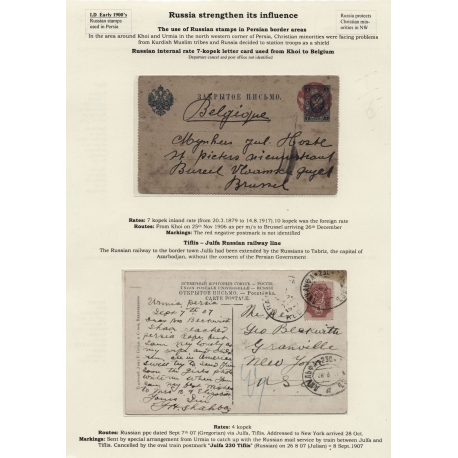 I.D Early 1900's
Russian stamps
used in Persia
Russia strengthen its influence
Russia protects
Christian
minorities in NW
The use of Russian stamps in Persian border areas
In the area around Khoi and Urmia in the north western corner of Persia, Christian minorities were facing problems
from Kurdish Muslim tribes and Russia decided to station troops as a shield
Russian internal rate 7-kopek letter card used from Khoi to Belgium
Departure cancel and post office not identified
ЗАКРЫТОЕ ПИСЬМО.
Belgique
Mynheer Gul. Hoste
St pieters nieuwstraat
Bureel Vlaamsche gazet
Brussel
Rates: 7 kopek inland rate (from 20.3.1879 to 14.8.1917),10 kopek was the foreign rate
Routes: From Khoi on 25th Nov 1906 as per m/s to Brussel arriving 26th December
Markings: The red negative postmark is not identified
Tiflis - Julfa Russian railway line
The Russian railway to the border town Julfa had been extended by the Russians to Tabriz, the capital of
Azarbadjan, without the consent of the Persian Government
ВСЕМІРНЫЙ ПОЧТОВЫЙ СОЮЗЪ. РОССІЯ.
UNION POSTALE UNIVERSELLE. RUSSIE.
ОТКРЫТОЕ ПИСЬМО
CARTE POSTALE.
Urmia Persia
Sept 7th 07
Geo Beckwith
Granville
New York
U S
Rates: 4 kopek
Routes: Russian ppc dated Sept 7th 07 (Gregorian) via Julfa, Tiflis. Addressed to New York arrived 28 Oct.
Markings: Sent by special arrangement from Urmia to catch up with the Russian mail service by train between Julfa and
Tiflis. Cancelled by the oval train postmark "Julfa 230 Tiflis" (Russian) on 26 8 07 (Julian) = 8 Sept.1907